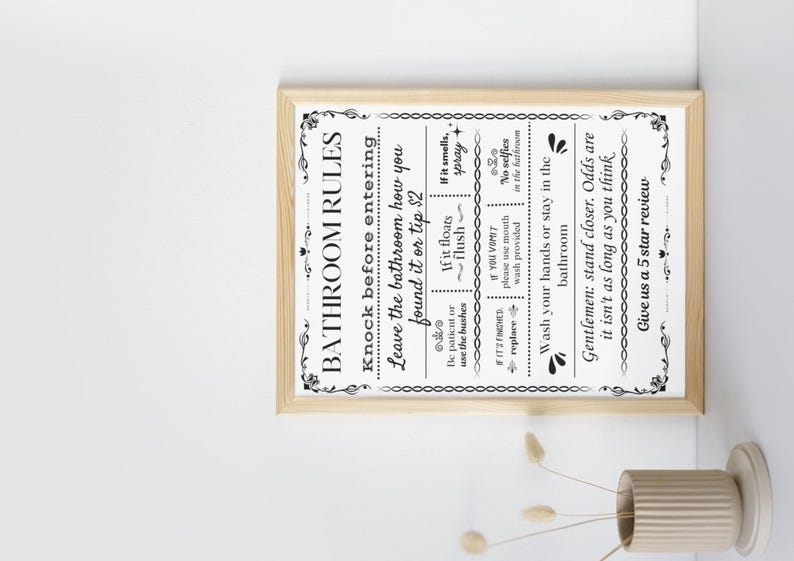 BATHROOM RULES
Knock before entering
Leave the bathroom how you
found it or tip $2
Be patient or
use the bushes
If it floats
flush
If it smells,
spray
IF IT'S FINISHED:
replace
IF YOU VOMIT
please use mouth
wash provided
No selfies
in the bathroom
Wash your hands or stay in the
bathroom
Gentlemen: stand closer. Odds are
it isn't as long as you think.
Give us a 5 star review